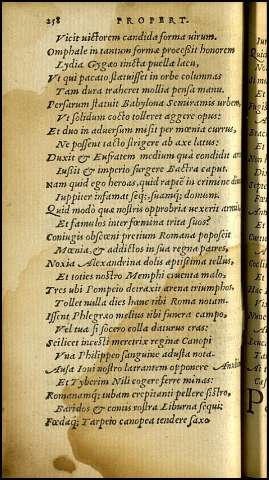 258 PROPERT.
Vicit victorem candida forma virum.
Omphale in tantum formæ processit honorem
Lydia Gygæo tincta puella lacu,
Vt qui pacato statuisset in orbe columnas
Tam dura traheret mollia pensa manu.
Persarum statuit Babylona Semiramis urbem,
Vt solidum cocto tolleret aggere opus:
Et duo in adversum misit per mœnia currus,
Ne possent tacto stringere ab axe latus:
Duxit & Eufratem medium quà condidit arces
Iussit & imperio surgere Bactra caput.
Nam quid ego heroas, quid raptē in crimine divos?
Iuppiter infamat seq; suamq; domum.
Quid modò quæ nostris opprobria vexerit armis,
Et famulos inter fœmina trita suos?
Coniugis obscœni pretium Romana poposcit
Mœnia, & addictos in sua regna patres,
Noxia Alexandrina dolis aptissima tellus,
Et toties nostro Memphi cruenta malo:
Tres ubi Pompeio detraxit arena triumphos,
Tollet nulla dies hanc tibi Roma notam.
Issent Phlegræo melius tibi funera campo,
Vel tua si socero colla daturus eras:
Scilicet incesti meretrix regina Canopi
Vna Philippeo sanguine adusta nota.
Ausa Ioui nostro latrantem opponere Anubim
Et Tyberim Nili cogere ferre minas:
Romanamq; tubam crepitanti pellere sistro,
Baridos & contis rostra Liburna sequi;
Fœdaq; Tarpeio canopea tendere saxo